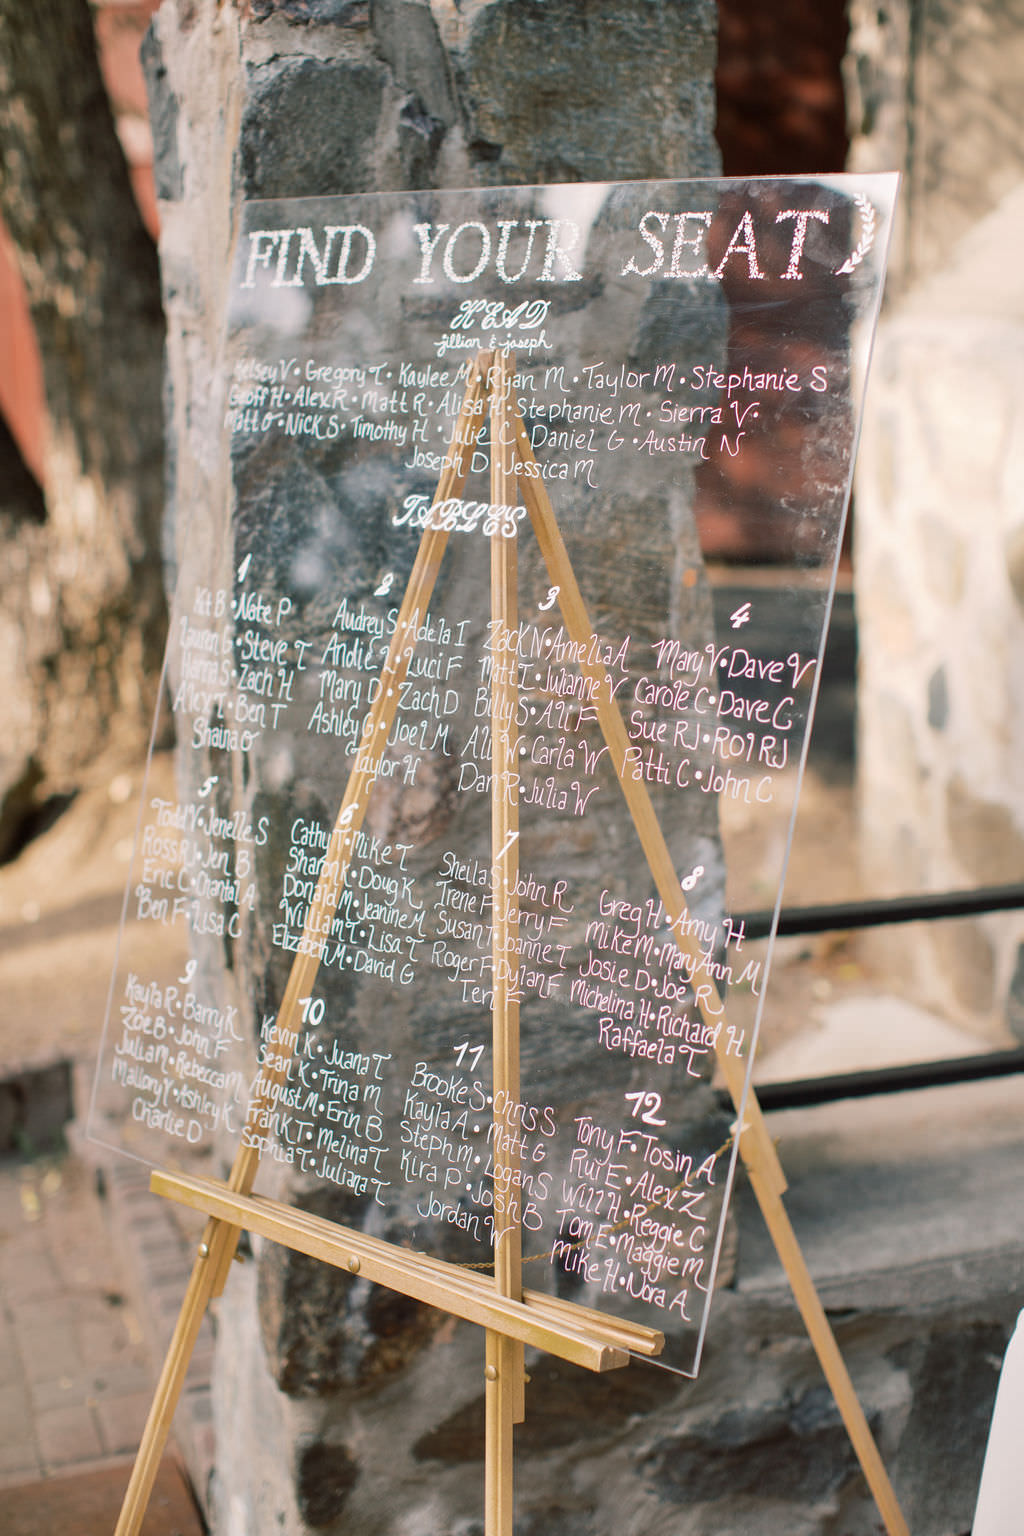 FIND YOUR SEAT
HEAD
jillian & joseph
Kelsey V • Gregory T • Kaylee M • Ryan M • Taylor M • Stephanie S
Geoff H • Alex R • Matt R • Alisa H • Stephanie M • Sierra V •
Matt O • Nick S • Timothy H • Julie C • Daniel G • Austin N
Joseph D • Jessica M
TABLES
1
Kit B • Nate P
Lauren G • Steve T
Hanna S • Zach H
Alex T • Ben T
Shaina O
2
Audrey S • Adela I
Andie L • Luci F
Mary D • Zach D
Ashley G • Joel M
Taylor H
3
Zack N • Amelia A
Matt I • Julianne V
Billy S • Ali F
Ali W • Carla W
Dan R • Julia W
4
Mary V • Dave V
Carole C • Dave C
Sue RJ • Rol RJ
Patti C • John C
5
Todd Y • Jenelle S
Ross RJ • Jen B
Eric C • Chantal A
Ben F • Lisa C
6
Cathy T • Mike T
Sharon K • Doug K
Donald M • Jeanine M
William T • Lisa T
Elizabeth M • David G
7
Sheila S • John R
Irene F • Jerry F
Susan T • Joanne T
Roger F • Dylan F
Teri F
8
Greg H • Amy H
Mike M • Mary Ann M
Josie D • Joe R
Michelina H • Richard H
Raffaela T
9
Kayla R • Barry K
Zoe B • John F
Julia M • Rebecca M
Mallory Y • Ashley K
Charlie D
10
Kevin K • Juana T
Sean K • Trina M
August M • Erin B
Frank T • Melina T
Sophia T • Juliana T
11
Brooke S • Chris S
Kayla A • Matt G
Steph M • Logan S
Kira P • Josh B
Jordan W
12
Tony F • Tosin A
Rui E • Alex Z
Will H • Reggie C
Tom E • Maggie M
Mike H • Nora A